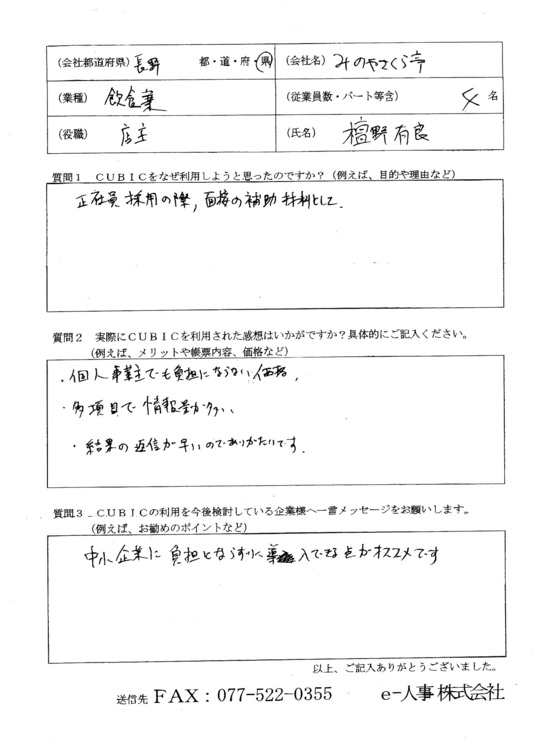 (会社都道府県) 長野 都・道・府・県 (会社名) みのやさくら亭
(業種) 飲食業 (従業員数・パート等含) 4 名
(役職) 店主 (氏名) 檀野有良
質問1 CUBICをなぜ利用しようと思ったのですか?(例えば、目的や理由など)
正社員採用の際,面接の補助材料として.
質問2 実際にCUBICを利用された感想はいかがですか?具体的にご記入ください。
(例えば、メリットや帳票内容、価格など)
・個人事業主でも負担にならない価格,
・多項目で情報量が多い、
・結果の返信が早いのでありがたいです.
質問3 CUBICの利用を今後検討している企業様へ一言メッセージをお願いします。
(例えば、お勧めのポイントなど)
中小企業に負担とならずに 入できる点がオススメです
以上、ご記入ありがとうございました。
送信先 FAX:077-522-0355 e-人事株式会社